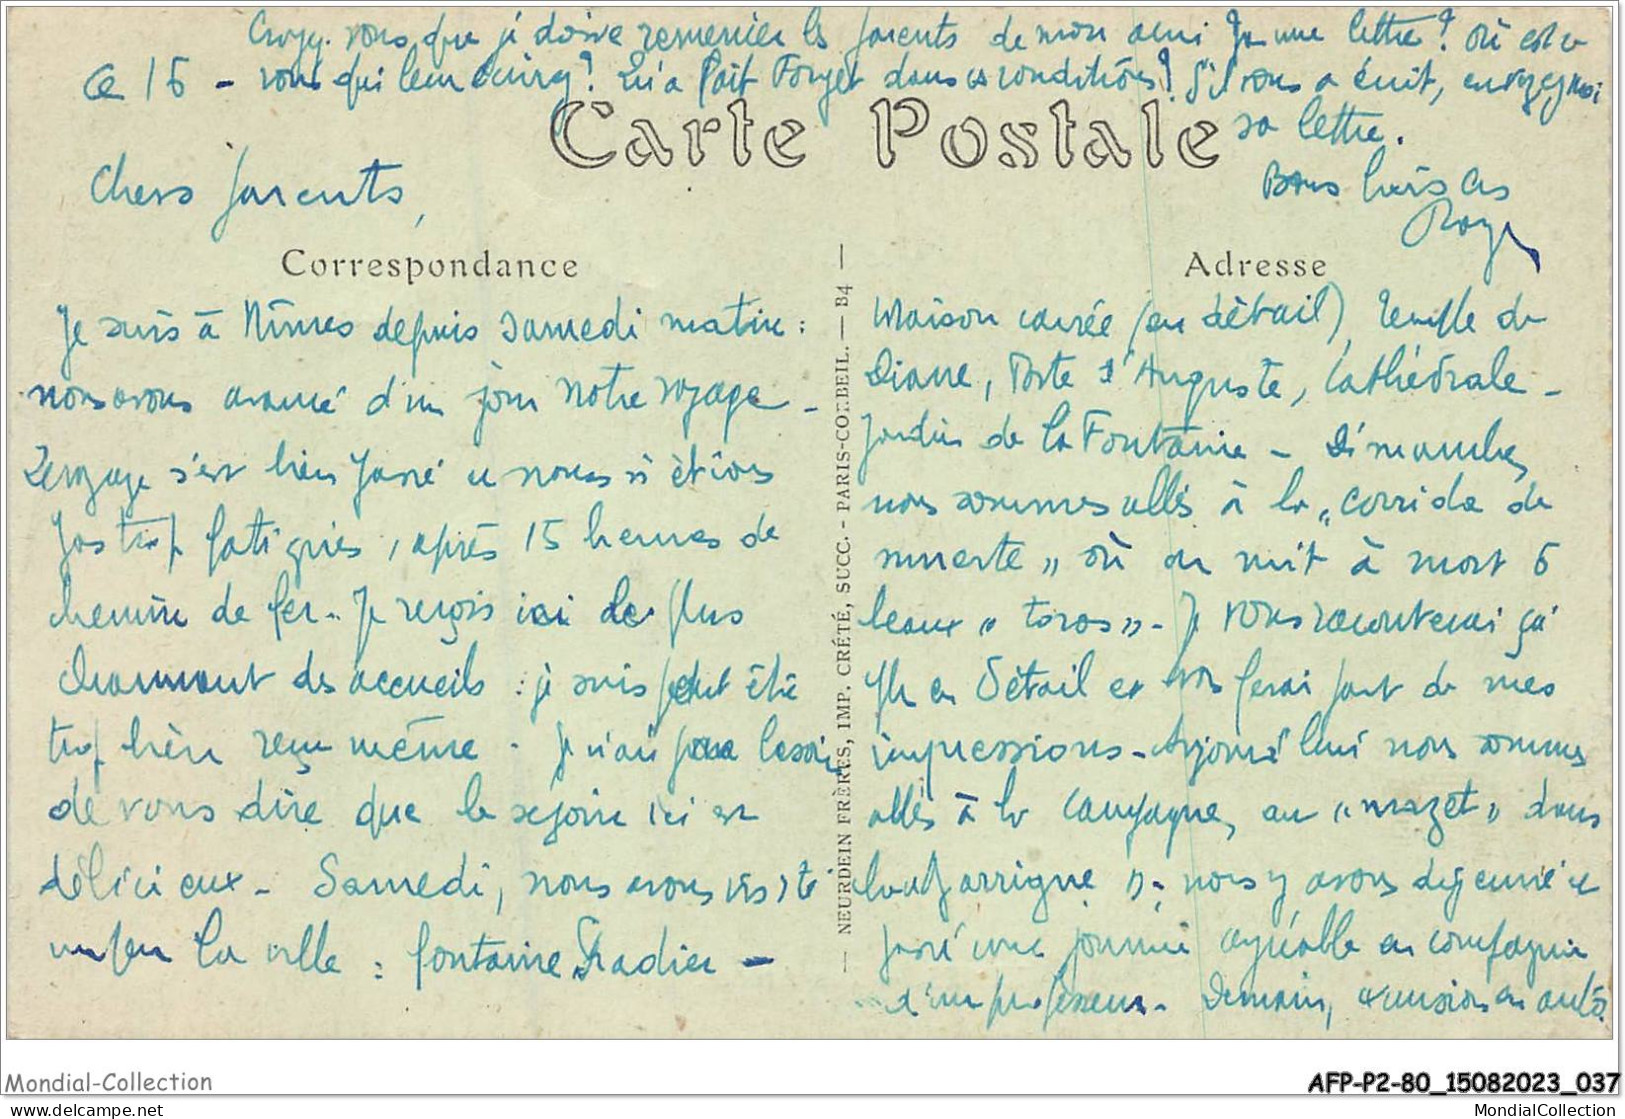 Croyez-vous que je doive remercier les parents de mon ami par une lettre? Où est-ce
Ce 15 - vous qui leur écrirez? Qu'a fait Forget dans ces conditions? S'il vous a écrit, envoyez moi
sa lettre.
Carte Postale
Chers parents,
Bons baisers
Roger
Correspondance
Je suis à Nîmes depuis samedi matin :
nous avons avancé d'un jour notre voyage -
Le voyage s'est bien passé et nous n'étions
pas trop fatigués, après 15 heures de
chemin de fer. Je reçois ici de plus
charmant des accueils : je suis peut être
trop bien reçu même. Je n'ai pas besoin
de vous dire que le séjour ici est
délicieux - Samedi, nous avons visité
un peu la ville : fontaine Pradier -
NEURDEIN FRÈRES, IMP. CRÉTÉ, SUCC. - PARIS-CORBEIL. - B4
Adresse
Maison carrée (en détail), Temple de
Diane, Porte d'Auguste, Cathédrale -
Jardin de la Fontaine - Dimanche,
nous sommes allés à la "corrida de
muerte" où on mit à mort 6
beaux "toros" - Je vous raconterai ça
plus en détail et vous ferai part de mes
impressions - Aujourd'hui nous sommes
allés à la campagne, au "mazet" dans
la "garrigue"; nous y avons déjeuné et
passé une journée agréable en compagnie
d'un professeur. Demain, excursion en auto.
Mondial-Collection
AFP-P2-80_15082023_037
www.delcampe.net
MondialCollection